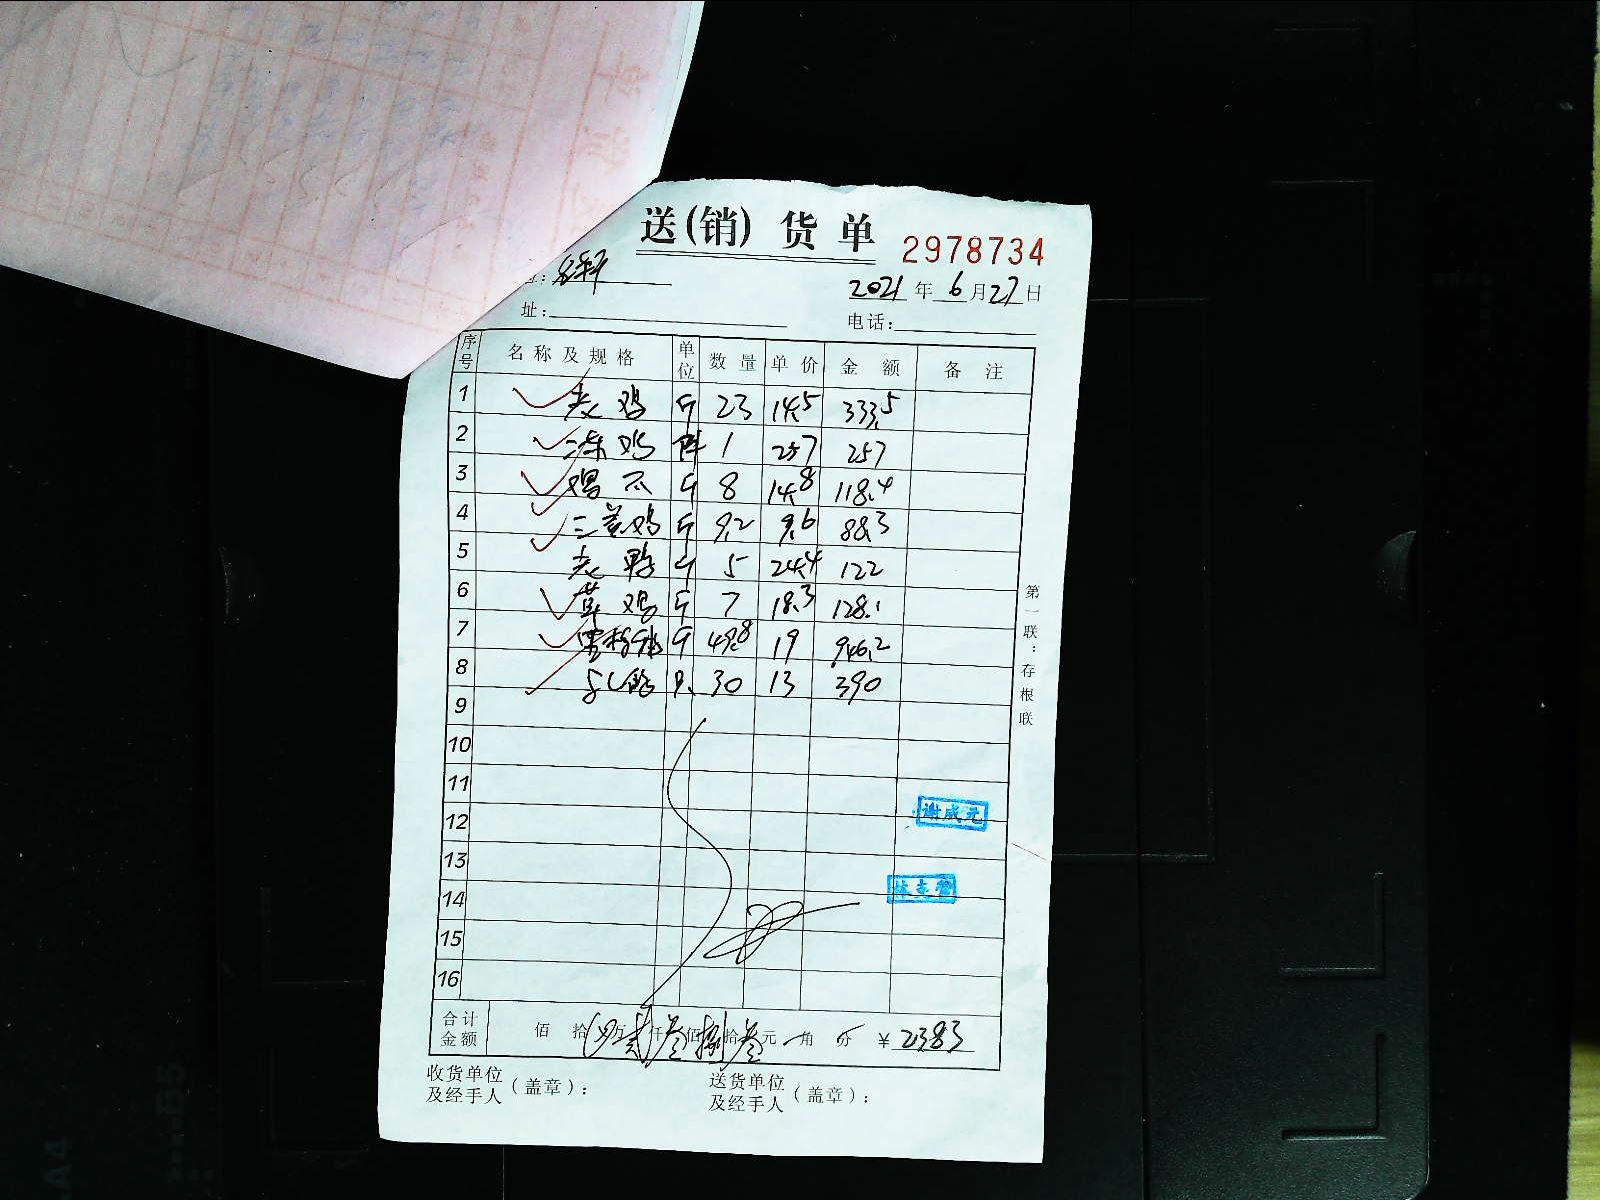 送(销) 货 单
2978734
2021 年 6 月 27 日
址:
电话:
序号 名称及规格 单位 数量 单价 金额 备注
1 老鸡 斤 23 14.5 333.5
2 冻鸡 件 1 257 257
3 鸡爪 斤 8 14.8 118.4
4 三黄鸡 斤 9.2 9.6 88.3
5 老鸭 斤 5 24.4 122
6 草鸡 斤 7 18.3 128.1
7 斤 49.8 19 946.2
8 乳鸽 只 30 13 390
9
10
11
12
13
14
15
16
第一联:存根联
谢成元
合计金额 佰 拾 万贰仟叁佰捌拾叁元 角 分 ¥2383
收货单位及经手人(盖章):
送货单位及经手人(盖章):
B5
A4